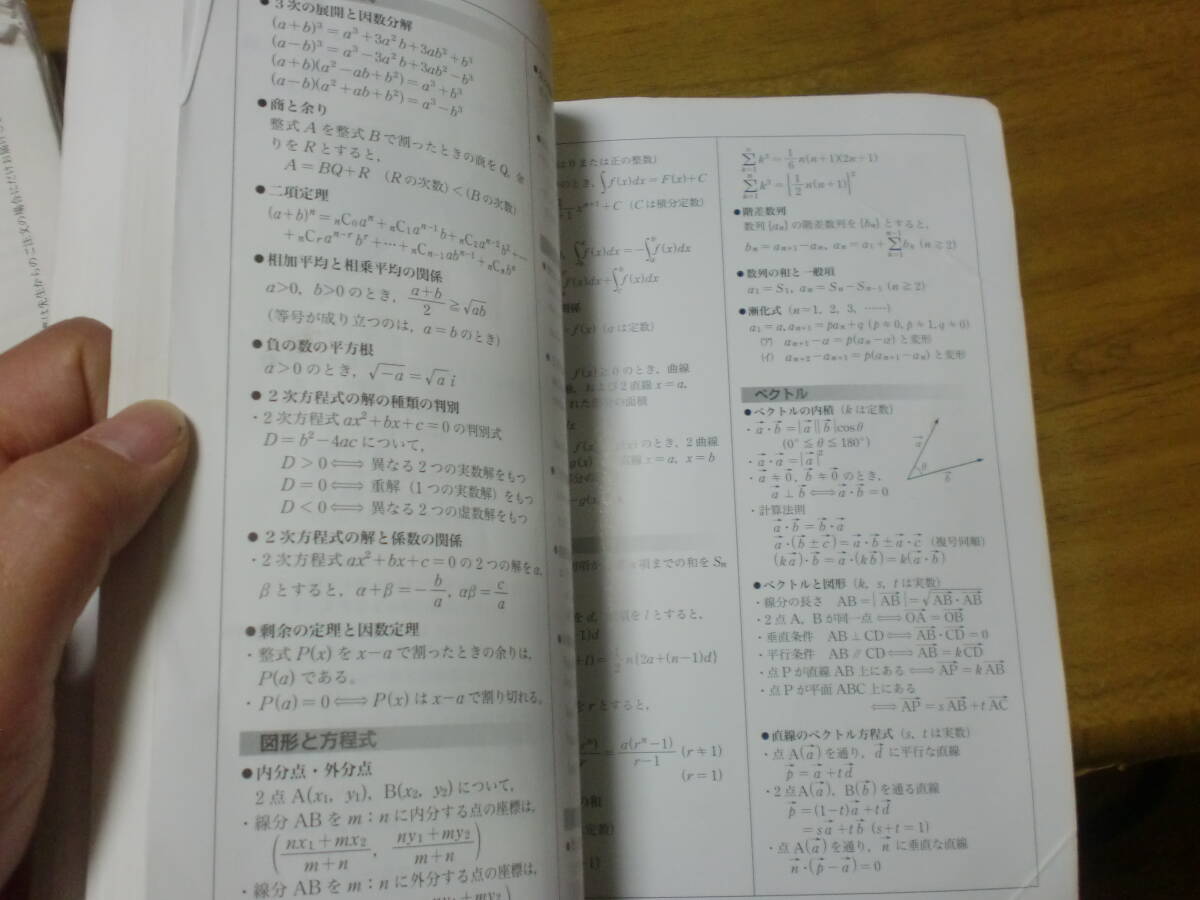 ● 3次の展開と因数分解
(a+b)³=a³+3a²b+3ab²+b³
(a−b)³=a³−3a²b+3ab²−b³
(a+b)(a²−ab+b²)=a³+b³
(a−b)(a²+ab+b²)=a³−b³
● 商と余り
整式Aを整式Bで割ったときの商をQ, 余
りをRとすると,
A=BQ+R (Rの次数)<(Bの次数)
● 二項定理
(a+b)ⁿ=ₙC₀aⁿ+ₙC₁aⁿ⁻¹b+ₙC₂aⁿ⁻²b²+…
+ₙCᵣaⁿ⁻ʳbʳ+…+ₙCₙ₋₁abⁿ⁻¹+ₙCₙbⁿ
● 相加平均と相乗平均の関係
a>0, b>0のとき, (a+b)/2≧√ab
(等号が成り立つのは, a=bのとき)
● 負の数の平方根
a>0のとき, √−a=√a i
● 2次方程式の解の種類の判別
・2次方程式ax²+bx+c=0の判別式
D=b²−4acについて,
D>0⟺異なる2つの実数解をもつ
D=0⟺重解(1つの実数解)をもつ
D<0⟺異なる2つの虚数解をもつ
● 2次方程式の解と係数の関係
・2次方程式ax²+bx+c=0の2つの解をα,
βとすると, α+β=−b/a, αβ=c/a
● 剰余の定理と因数定理
・整式P(x)をx−aで割ったときの余りは,
P(a)である。
・P(a)=0⟺P(x)はx−aで割り切れる。
図形と方程式
● 内分点・外分点
2点A(x₁, y₁), B(x₂, y₂)について,
・線分ABをm:nに内分する点の座標は,
((nx₁+mx₂)/(m+n), (ny₁+my₂)/(m+n))
・線分ABをm:nに外分する点の座標は,
は0または正の整数)
のとき, ∫f(x)dx=F(x)+C
xⁿ⁺¹+C (Cは積分定数)
f(x)dx=−∫f(x)dx
f(x)dx+∫f(x)dx
関係
f(x) (aは定数)
f(x)≧0のとき, 曲線
および2直線x=a,
のとき, 2曲線
直線x=a, x=b
項までの和をSₙ
lとすると,
n{2a+(n−1)d}
をrとすると,
=a(rⁿ−1)/(r−1) (r≠1)
(r=1)
の和
定数)
∑ₖ₌₁ⁿ k²=1/6 n(n+1)(2n+1)
∑ₖ₌₁ⁿ k³={1/2 n(n+1)}²
● 階差数列
数列{aₙ}の階差数列を{bₙ}とすると,
bₙ=aₙ₊₁−aₙ, aₙ=a₁+∑ₖ₌₁ⁿ⁻¹bₖ (n≧2)
● 数列の和と一般項
a₁=S₁, aₙ=Sₙ−Sₙ₋₁ (n≧2)
● 漸化式 (n=1, 2, 3, ……)
a₁=a, aₙ₊₁=paₙ+q (p≠0, p≠1, q≠0)
(ア) aₙ₊₁−α=p(aₙ−α)と変形
(イ) aₙ₊₂−aₙ₊₁=p(aₙ₊₁−aₙ)と変形
ベクトル
● ベクトルの内積 (kは定数)
・a⃗・b⃗=|a⃗||b⃗|cosθ
(0°≦θ≦180°)
・a⃗・a⃗=|a⃗|²
・a⃗≠0⃗, b⃗≠0⃗のとき,
a⃗⊥b⃗⟺a⃗・b⃗=0
a⃗
θ
b⃗
・計算法則
a⃗・b⃗=b⃗・a⃗
a⃗・(b⃗±c⃗)=a⃗・b⃗±a⃗・c⃗ (複号同順)
(ka⃗)・b⃗=a⃗・(kb⃗)=k(a⃗・b⃗)
● ベクトルと図形 (k, s, tは実数)
・線分の長さ AB=|AB⃗|=√AB⃗・AB⃗
・2点A, Bが同一点⟺OA⃗=OB⃗
・垂直条件 AB⊥CD⟺AB⃗・CD⃗=0
・平行条件 AB∥CD⟺AB⃗=kCD⃗
・点Pが直線AB上にある⟺AP⃗=kAB⃗
・点Pが平面ABC上にある
⟺AP⃗=sAB⃗+tAC⃗
● 直線のベクトル方程式 (s, tは実数)
・点A(a⃗)を通り, d⃗に平行な直線
p⃗=a⃗+td⃗
・2点A(a⃗), B(b⃗)を通る直線
p⃗=(1−t)a⃗+td⃗
=sa⃗+tb⃗ (s+t=1)
・点A(a⃗)を通り, n⃗に垂直な直線
n⃗・(p⃗−a⃗)=0